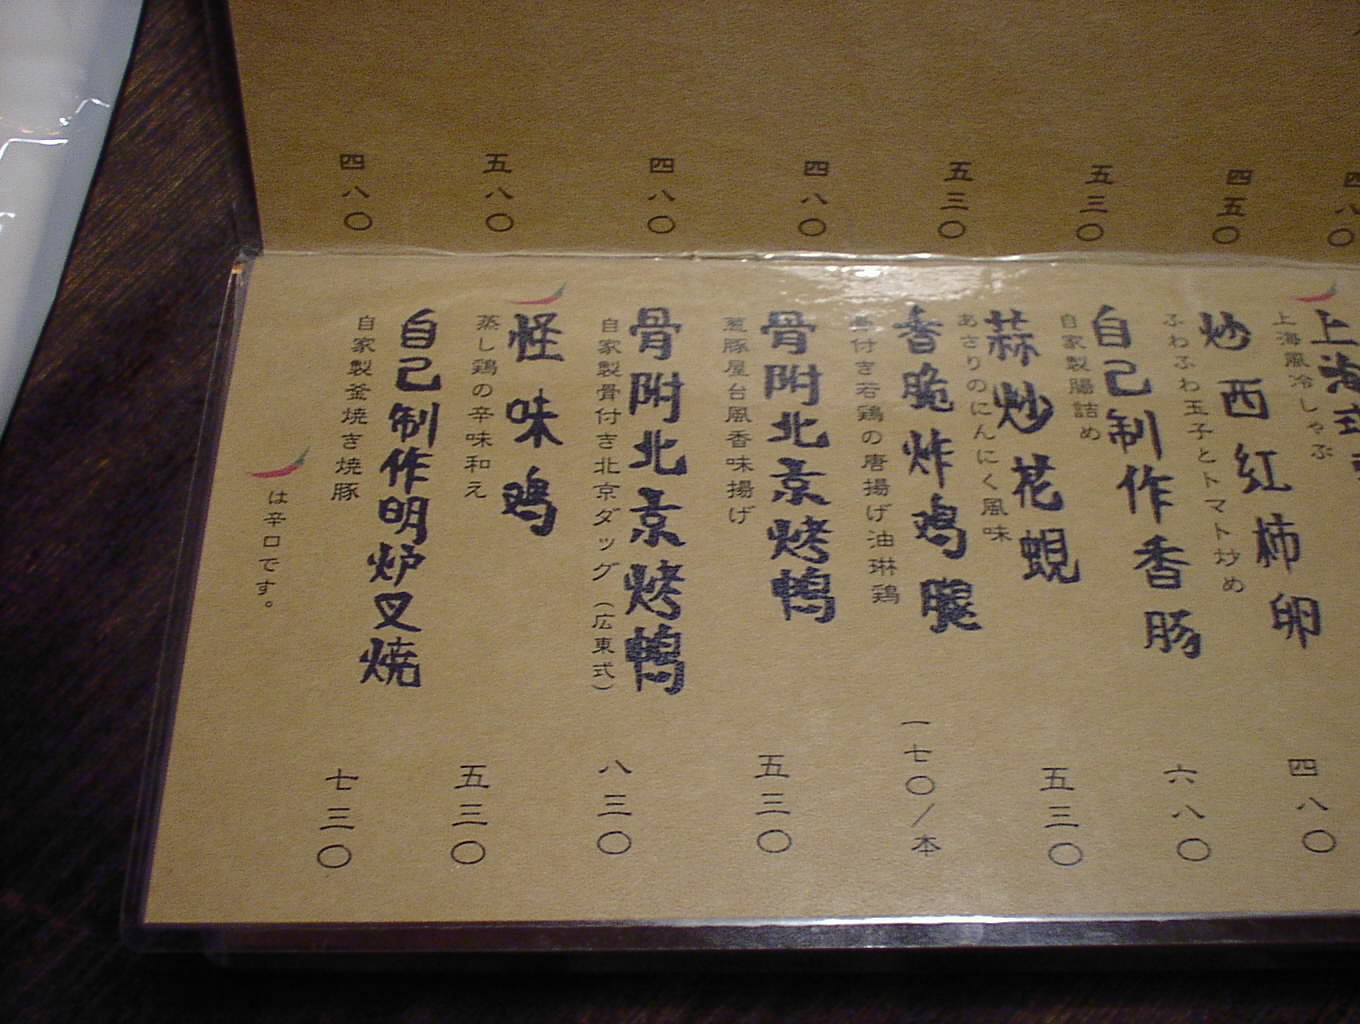 四八〇
四五〇
五三〇
五三〇
四八〇
四八〇
五八〇
四八〇
上海式
上海風冷しゃぶ
炒西红柿卵
ふわふわ玉子とトマト炒め
四八〇
自己制作香豚
自家製腸詰め
六八〇
蒜炒花蜆
あさりのにんにく風味
五三〇
香脆炸鸡腿
骨付き若鶏の唐揚げ油琳鶏
一七〇／本
骨附北京烤鸭
葱豚屋台風香味揚げ
五三〇
骨附北京烤鸭
自家製骨付き北京ダッグ（広東式）
八三〇
怪味鸡
蒸し鶏の辛味和え
五三〇
自己制作明炉叉焼
自家製釜焼き焼豚
七三〇
は辛口です。